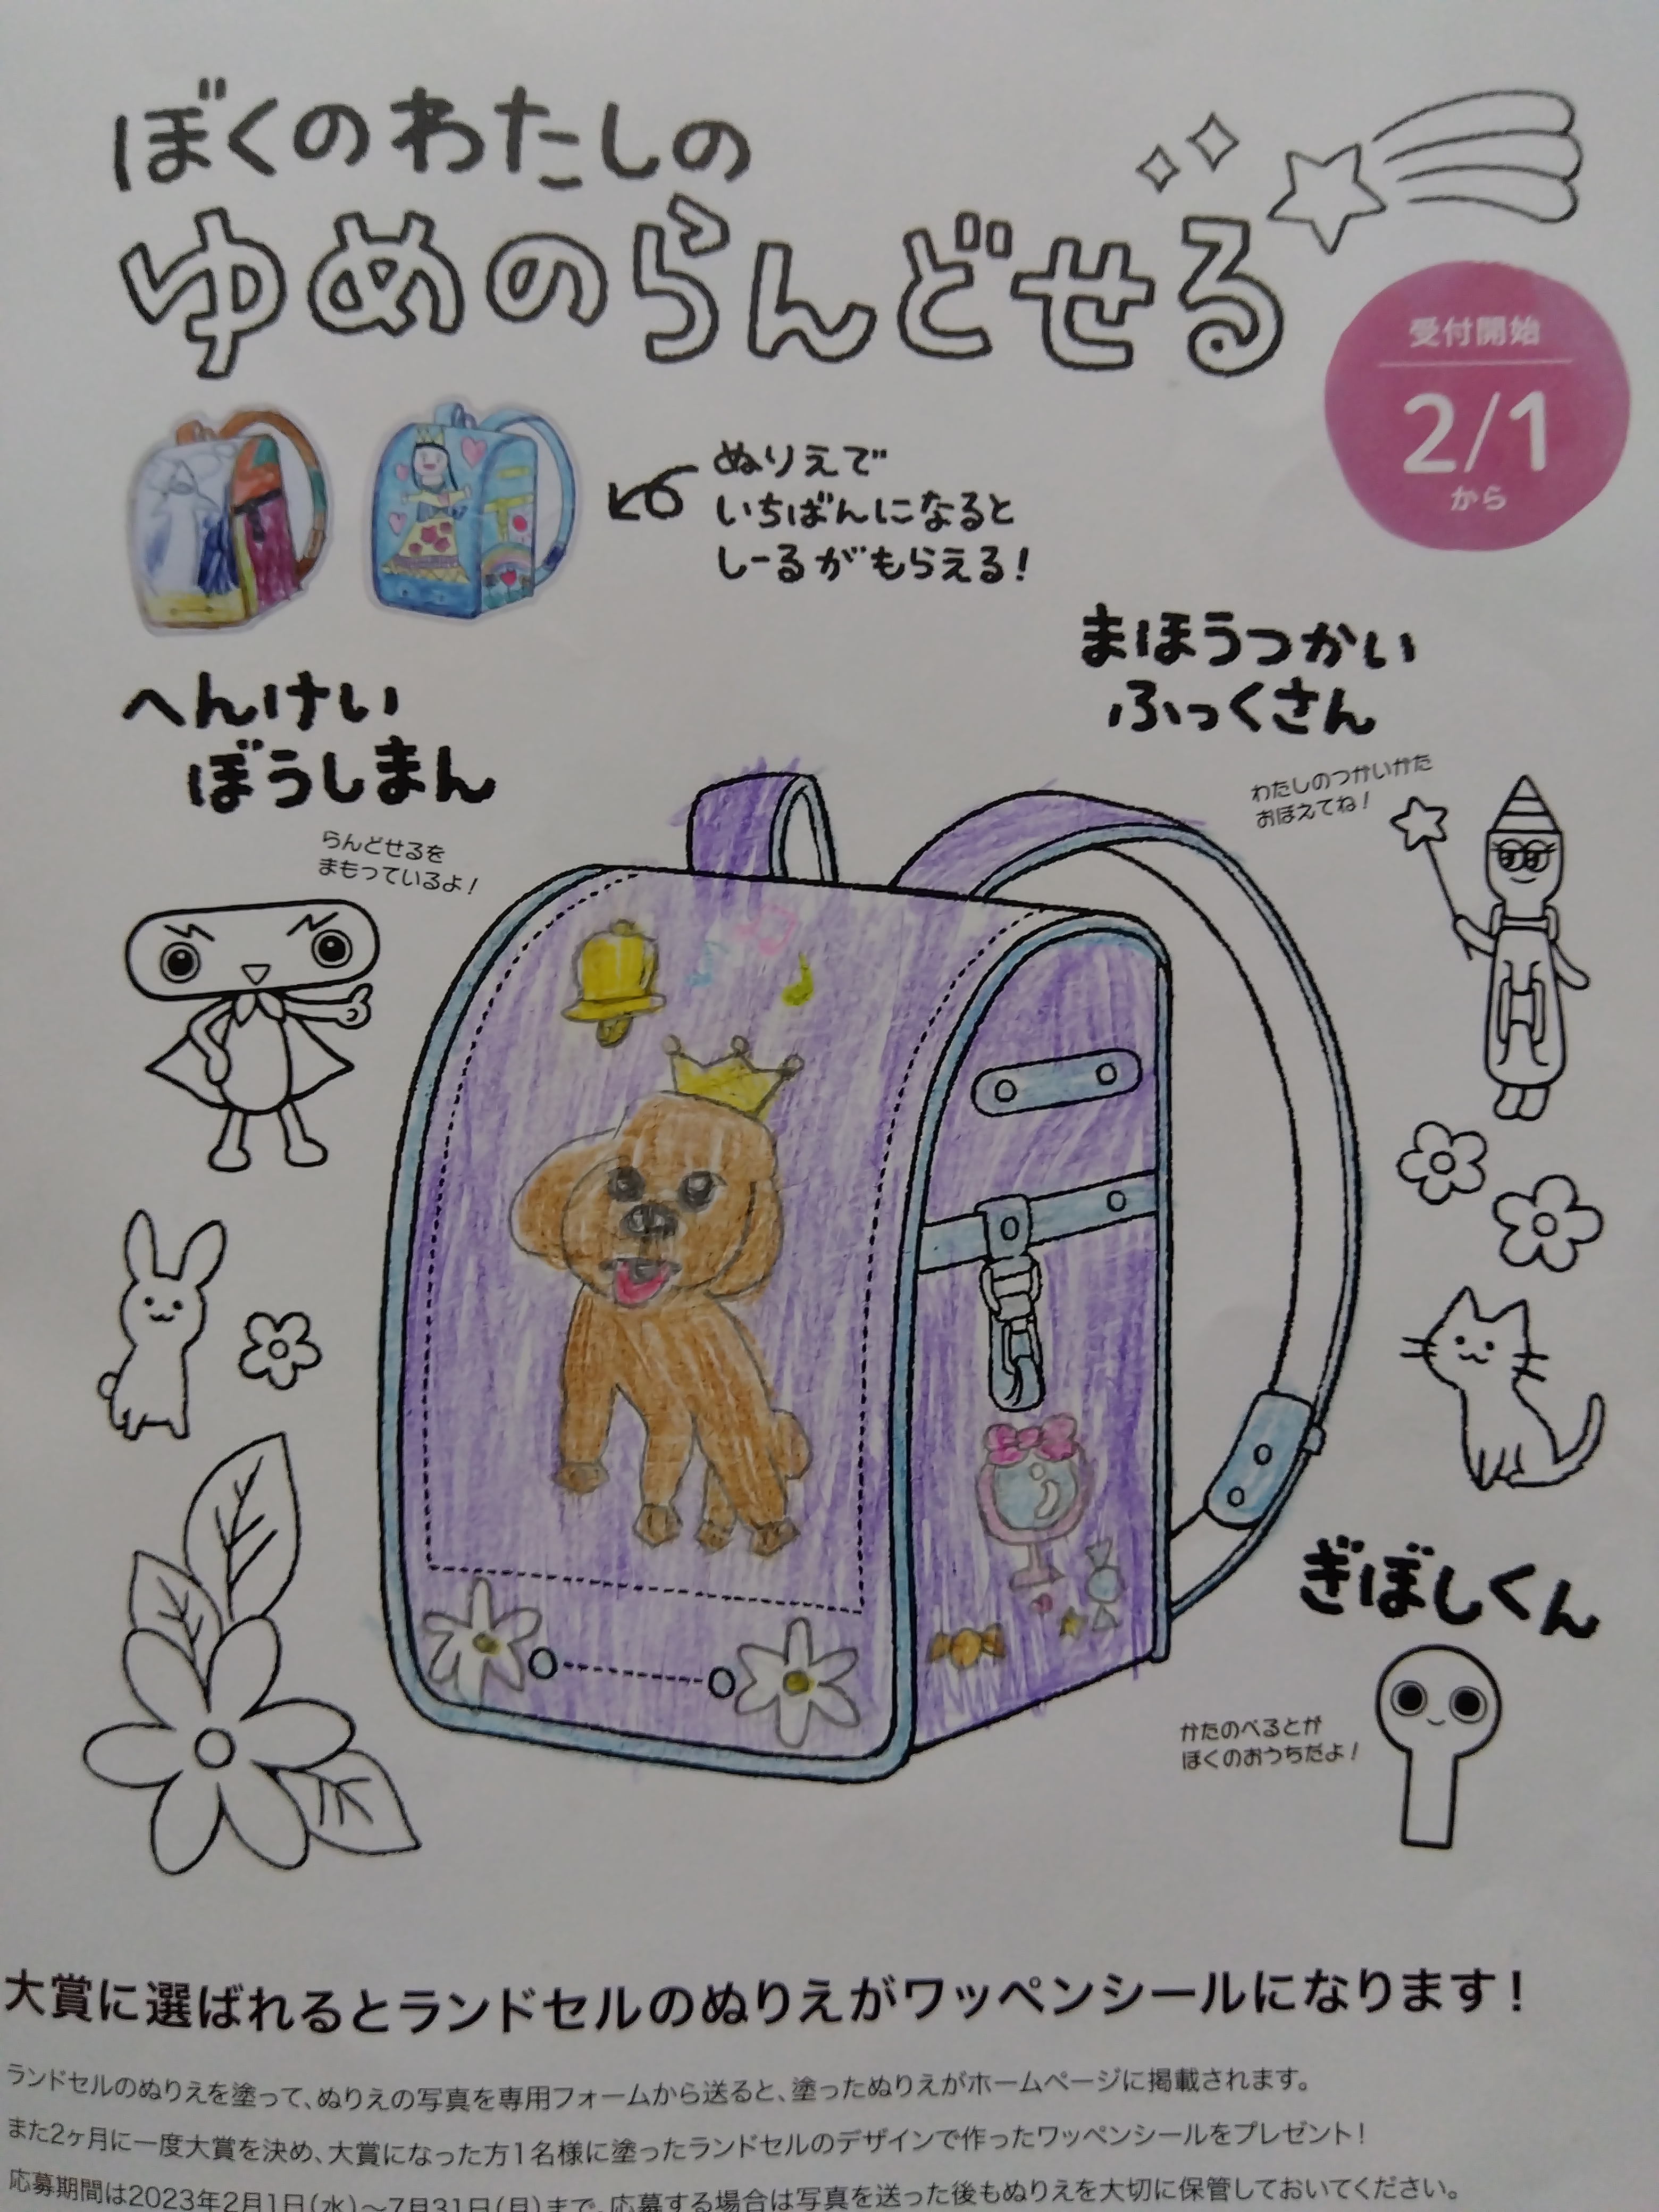 ぼくのわたしの
ゆめのらんどせる
受付開始
2/1
から
ぬりえで
いちばんになると
しーるがもらえる!
まほうつかい
ふっくさん
わたしのつかいかた
おぼえてね!
へんけい
ぼうしまん
らんどせるを
まもっているよ!
ぎぼしくん
かたのべるとが
ぼくのおうちだよ!
大賞に選ばれるとランドセルのぬりえがワッペンシールになります!
ランドセルのぬりえを塗って、ぬりえの写真を専用フォームから送ると、塗ったぬりえがホームページに掲載されます。
また2ヶ月に一度大賞を決め、大賞になった方1名様に塗ったランドセルのデザインで作ったワッペンシールをプレゼント!
応募期間は2023年2月1日(水)~7月31日(月)まで。応募する場合は写真を送った後もぬりえを大切に保管しておいてください。